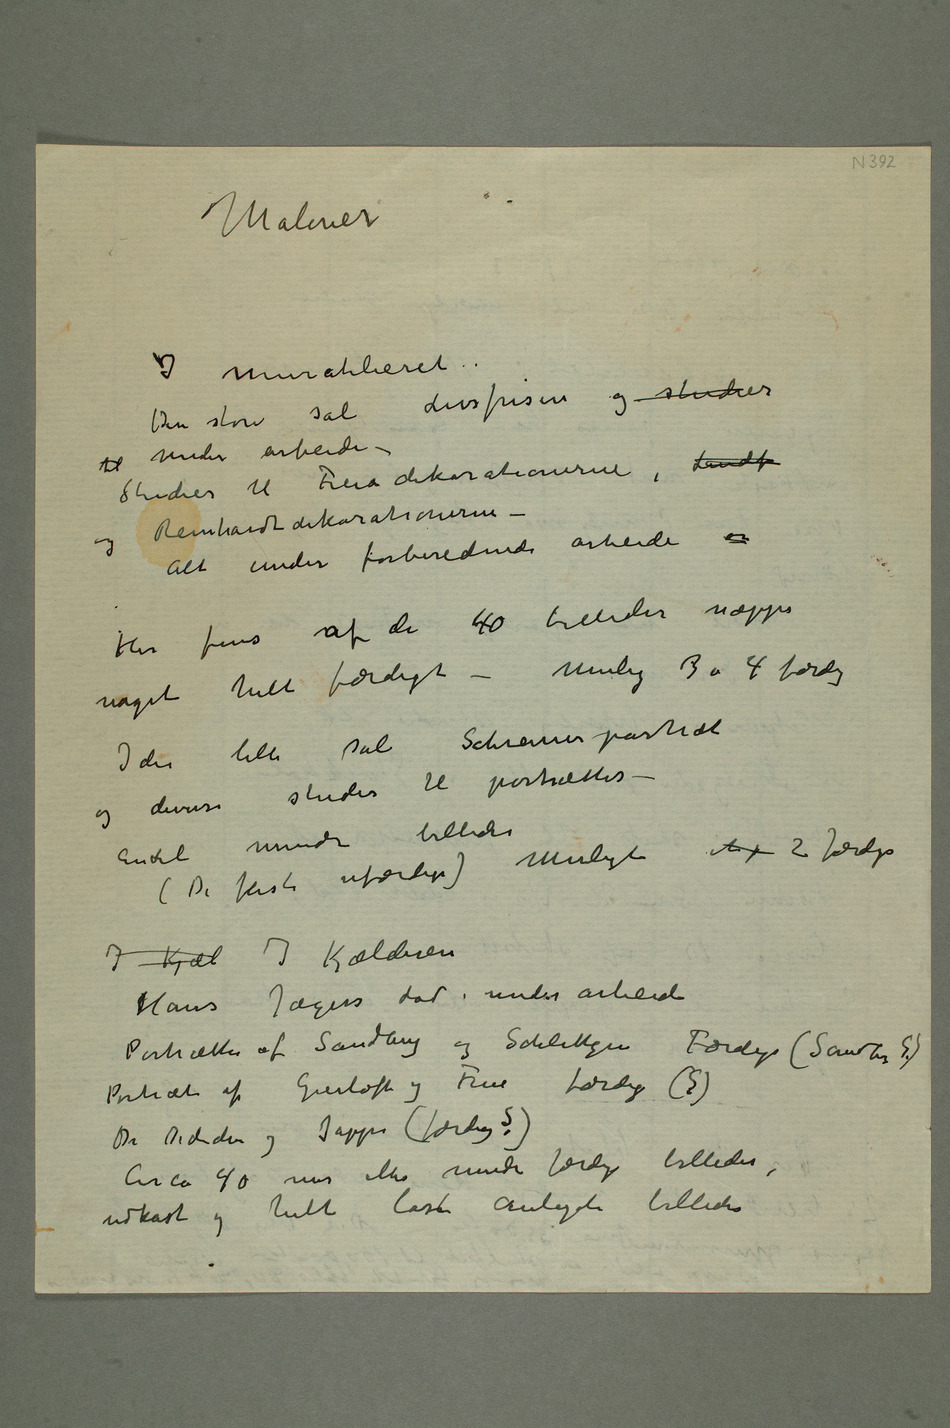 N 392
Malerier
I muratelieret..
Den store sal Livsfrisen og studier
til under arbeide –
Studier til Freiadekorationerne,
og Reinhardtdekorationerne –
Alt under forberedende arbeide er
Her fins af de 40 billeder næppe
noget helt færdigt – Mulig 3 a 4 færdig
I den lille sal Schreinerportræt
og diverse studier til portrætter –
Endel mindre billeder
(De fleste ufærdige) Muligt 2 færdige
I Kjæl I Kjælderen
Hans Jægers død. under arbeide
Portrætter af Sandberg og Schlittgen Færdige (Sandberg ?)
Portræt af Gierløff og Frue færdig (?)
Dr Dedichen og Jappe (færdig ?)
Circa 40 mer eller mindre færdige billeder,
udkast og helt løst anlagte billeder